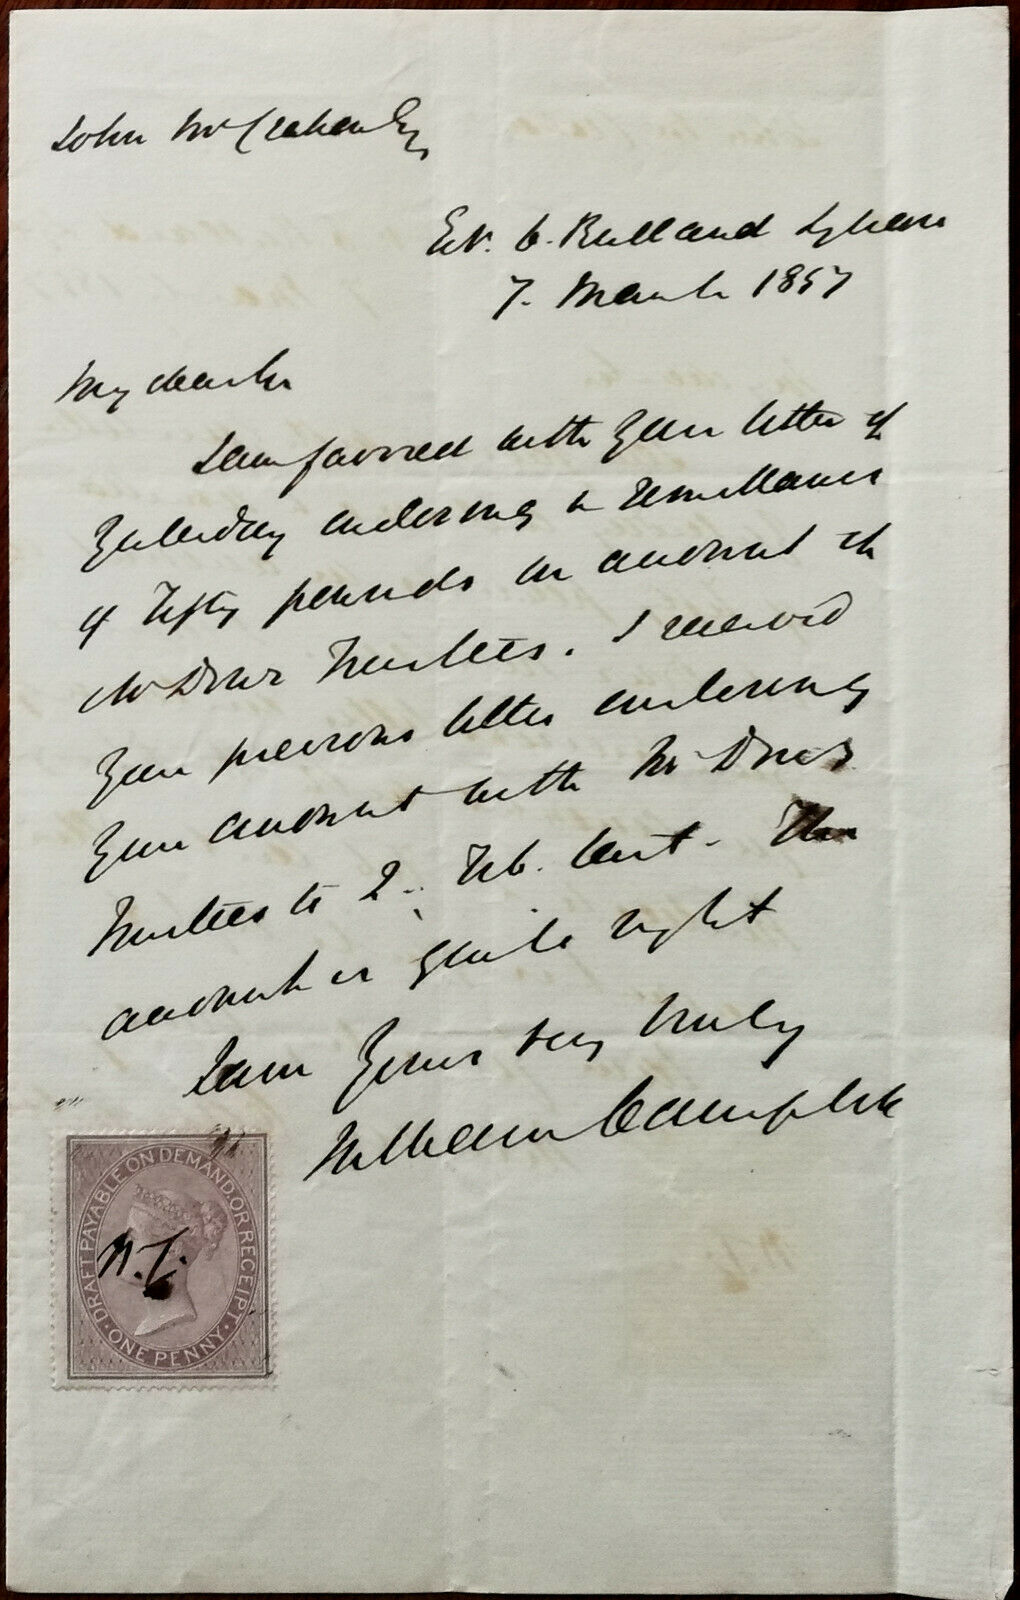 John McCracken Esq
Ed. 6. Rutland Square
7. March 1857
My dear Sir
I am favored with your letter of
yesterday enclosing a remittance
of Fifty pounds on account of
Mr Dows Trustees. I received
your previous letter enclosing
your account with Mr Dows
Trustees to 2. Feb. last. The
account is quite right
I am yours very truly
William Campbell
DRAFT PAYABLE ON DEMAND, OR RECEIPT.
ONE PENNY
W.C.